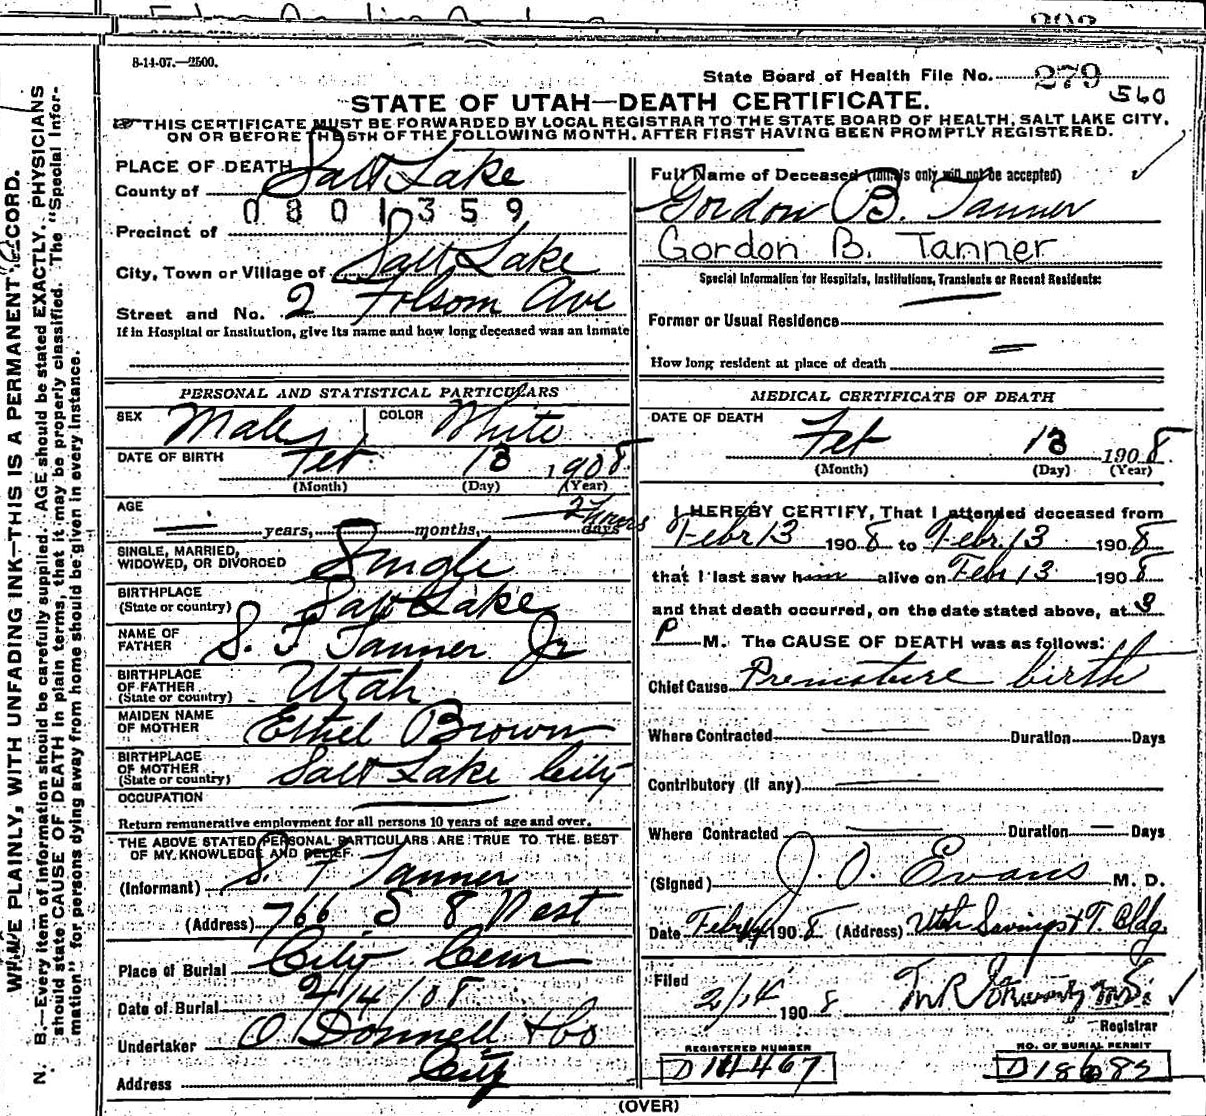 8-14-07.—2500.
State Board of Health File No. 279
560
STATE OF UTAH—DEATH CERTIFICATE.
THIS CERTIFICATE MUST BE FORWARDED BY LOCAL REGISTRAR TO THE STATE BOARD OF HEALTH, SALT LAKE CITY,
ON OR BEFORE THE 5TH OF THE FOLLOWING MONTH, AFTER FIRST HAVING BEEN PROMPTLY REGISTERED.
PLACE OF DEATH
County of Salt Lake
0801359
Precinct of
City, Town or Village of Salt Lake
Street and No. 2 Folsom Ave
If in Hospital or Institution, give its name and how long deceased was an inmate
PERSONAL AND STATISTICAL PARTICULARS
SEX Male COLOR White
DATE OF BIRTH Feb 13 1908
(Month) (Day) (Year)
AGE
years, months, 2 hours days
SINGLE, MARRIED,
WIDOWED, OR DIVORCED Single
BIRTHPLACE
(State or country) Salt Lake
NAME OF
FATHER S. F. Tanner Jr
BIRTHPLACE
OF FATHER
(State or country) Utah
MAIDEN NAME
OF MOTHER Ethel Brown
BIRTHPLACE
OF MOTHER
(State or country) Salt Lake City
OCCUPATION
Return remunerative employment for all persons 10 years of age and over.
THE ABOVE STATED PERSONAL PARTICULARS ARE TRUE TO THE BEST
OF MY KNOWLEDGE AND BELIEF
(Informant) S. F. Tanner
(Address) 766 S 8 West
Place of Burial City Cem
Date of Burial 2/14/08
Undertaker O Donnell & Co
Address City
Full Name of Deceased (Initials only will not be accepted)
Gordon B. Tanner
Gordon B. Tanner
Special Information for Hospitals, Institutions, Transients or Recent Residents:
Former or Usual Residence
How long resident at place of death
MEDICAL CERTIFICATE OF DEATH
DATE OF DEATH
Feb 13 1908
(Month) (Day) (Year)
I HEREBY CERTIFY, That I attended deceased from
Febr 13 1908 to Febr. 13 1908
that I last saw him alive on Febr 13 1908
and that death occurred, on the date stated above, at 3
P M. The CAUSE OF DEATH was as follows:
Chief Cause Premature birth
Where Contracted Duration Days
Contributory (if any)
Where Contracted Duration Days
(Signed) J. O. Evans M. D.
Date Feb 14 1908 (Address) Utah Savings & T. Bldg.
Filed
2/14 1908
Registrar
REGISTERED NUMBER NO. OF BURIAL PERMIT
D14467
(OVER)
WRITE PLAINLY, WITH UNFADING INK—THIS IS A PERMANENT RECORD.
N. B.—Every item of information should be carefully supplied. AGE should be stated EXACTLY. PHYSICIANS
should state CAUSE OF DEATH in plain terms, that it may be properly classified. The "Special Infor-
mation" for persons dying away from home should be given in every instance.